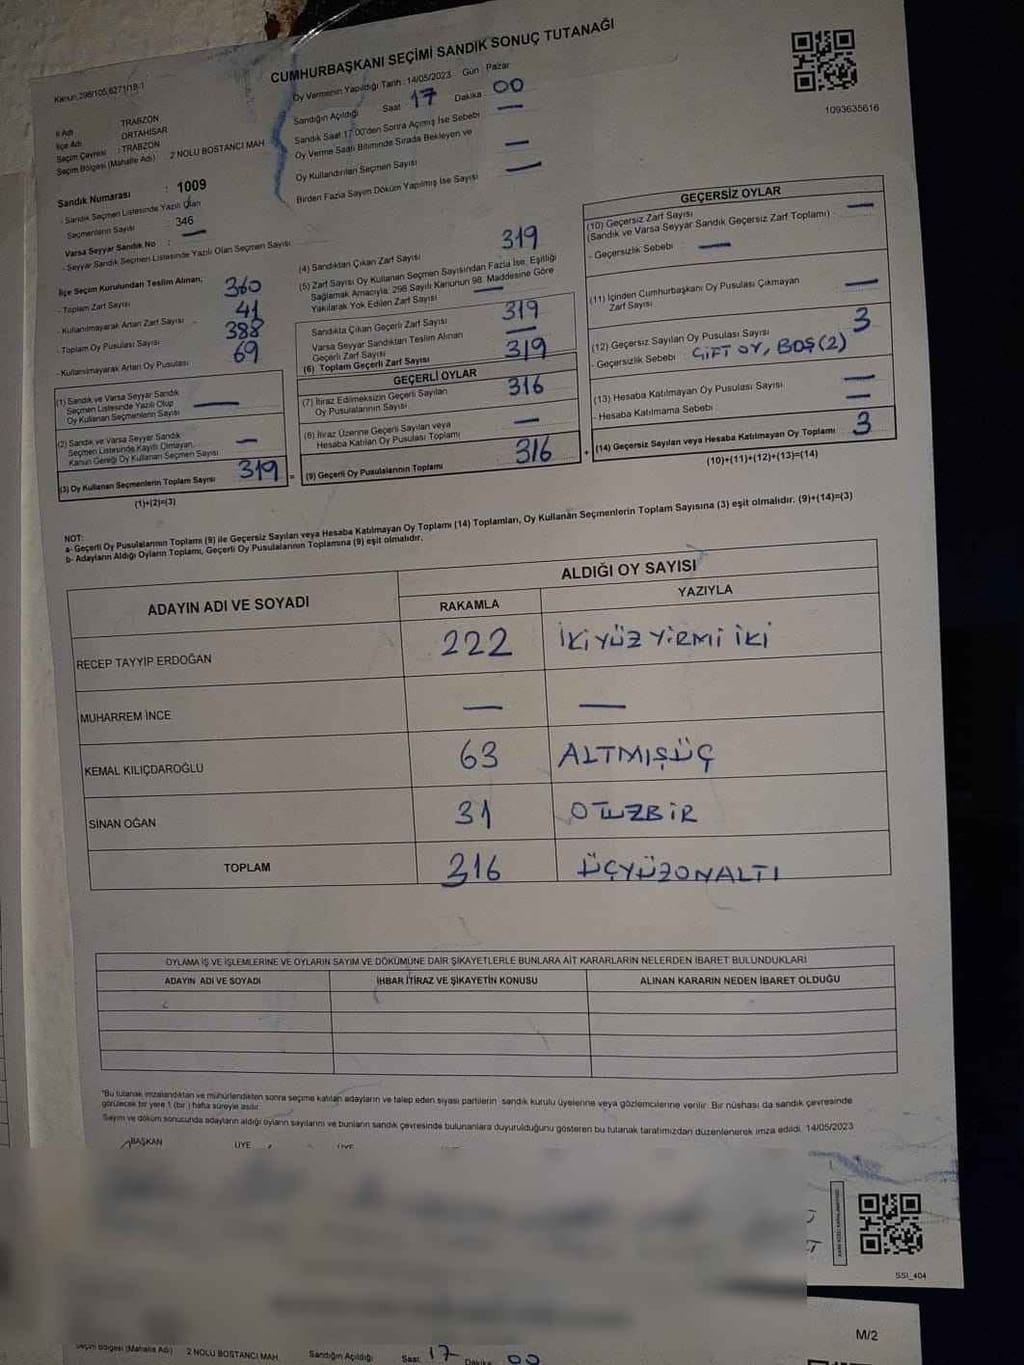 CUMHURBAŞKANI SEÇİMİ SANDIK SONUÇ TUTANAĞI
Kanun 298/105,6271/18-1
Oy Vermenin Yapıldığı Tarih : 14/05/2023 Gün : Pazar
1093635616
İl Adı : TRABZON
İlçe Adı : ORTAHİSAR
Seçim Çevresi : TRABZON
Seçim Bölgesi (Mahalle Adı) 2 NOLU BOSTANCI MAH.
Sandığın Açıldığı Saat 17 Dakika 00
Sandık Saat 17:00'den Sonra Açılmış İse Sebebi —
Oy Verme Saati Bitiminde Sırada Bekleyen ve
Oy Kullandırılan Seçmen Sayısı —
Birden Fazla Sayım Döküm Yapılmış İse Sayısı —
Sandık Numarası : 1009
- Sandık Seçmen Listesinde Yazılı Olan
Seçmenlerin Sayısı 346
Varsa Seyyar Sandık No : —
- Seyyar Sandık Seçmen Listesinde Yazılı Olan Seçmen Sayısı
İlçe Seçim Kurulundan Teslim Alınan;
- Toplam Zarf Sayısı 360
- Kullanılmayarak Artan Zarf Sayısı 41
- Toplam Oy Pusulası Sayısı 388
- Kullanılmayarak Artan Oy Pusulası 69
(1) Sandık ve Varsa Seyyar Sandık
Seçmen Listesinde Yazılı Olup
Oy Kullanan Seçmenlerin Sayısı —
(2) Sandık ve Varsa Seyyar Sandık
Seçmen Listesinde Kayıtlı Olmayan,
Kanun Gereği Oy Kullanan Seçmen Sayısı —
(3) Oy Kullanan Seçmenlerin Toplam Sayısı 319 =
(1)+(2)=(3)
(4) Sandıktan Çıkan Zarf Sayısı 319
(5) Zarf Sayısı Oy Kullanan Seçmen Sayısından Fazla İse, Eşitliği
Sağlamak Amacıyla, 298 Sayılı Kanunun 98. Maddesine Göre
Yakılarak Yok Edilen Zarf Sayısı —
Sandıkta Çıkan Geçerli Zarf Sayısı 319
Varsa Seyyar Sandıktan Teslim Alınan
Geçerli Zarf Sayısı —
(6) Toplam Geçerli Zarf Sayısı 319
GEÇERLİ OYLAR
(7) İtiraz Edilmeksizin Geçerli Sayılan
Oy Pusulalarının Sayısı 316
(8) İtiraz Üzerine Geçerli Sayılan veya
Hesaba Katılan Oy Pusulası Toplamı —
(9) Geçerli Oy Pusulalarının Toplamı 316 +
GEÇERSİZ OYLAR
(10) Geçersiz Zarf Sayısı —
(Sandık ve Varsa Seyyar Sandık Geçersiz Zarf Toplamı)
- Geçersizlik Sebebi : —
(11) İçinden Cumhurbaşkanı Oy Pusulası Çıkmayan
Zarf Sayısı —
(12) Geçersiz Sayılan Oy Pusulası Sayısı 3
- Geçersizlik Sebebi : ÇİFT OY, BOŞ(2)
(13) Hesaba Katılmayan Oy Pusulası Sayısı —
- Hesaba Katılmama Sebebi : —
(14) Geçersiz Sayılan veya Hesaba Katılmayan Oy Toplamı 3
(10)+(11)+(12)+(13)=(14)
NOT:
a- Geçerli Oy Pusulalarının Toplamı (9) ile Geçersiz Sayılan veya Hesaba Katılmayan Oy Toplamı (14) Toplamları, Oy Kullanan Seçmenlerin Toplam Sayısına (3) eşit olmalıdır. (9)+(14)=(3)
b- Adayların Aldığı Oyların Toplamı, Geçerli Oy Pusulalarının Toplamına (9) eşit olmalıdır.
ADAYIN ADI VE SOYADI
ALDIĞI OY SAYISI
RAKAMLA YAZIYLA
RECEP TAYYIP ERDOĞAN 222 İKİYÜZ YİRMİ İKİ
MUHARREM İNCE — —
KEMAL KILIÇDAROĞLU 63 ALTMIŞÜÇ
SİNAN OĞAN 31 OTUZBİR
TOPLAM 316 ÜÇYÜZONALTI
OYLAMA İŞ VE İŞLEMLERİNE VE OYLARIN SAYIM VE DÖKÜMÜNE DAİR ŞİKAYETLERLE BUNLARA AİT KARARLARIN NELERDEN İBARET BULUNDUKLARI
ADAYIN ADI VE SOYADI İHBAR İTİRAZ VE ŞİKAYETİN KONUSU ALINAN KARARIN NEDEN İBARET OLDUĞU
"Bu tutanak imzalandıktan ve mühürlendikten sonra seçime katılan adayların ve talep eden siyasi partilerin sandık kurulu üyelerine veya gözlemcilerine verilir. Bir nüshası da sandık çevresinde
görülecek bir yere 1 (bir ) hafta süreyle asılır.
Sayım ve döküm sonucunda adayların aldığı oyların sayılarını ve bunların sandık çevresinde bulunanlara duyurulduğunu gösteren bu tutanak tarafımızdan düzenlenerek imza edildi. 14/05/2023
BAŞKAN ÜYE ÜYE
SSI_404
M/2
Seçim Bölgesi (Mahalle Adı) 2 NOLU BOSTANCI MAH. Sandığın Açıldığı Saat 17 Dakika 00